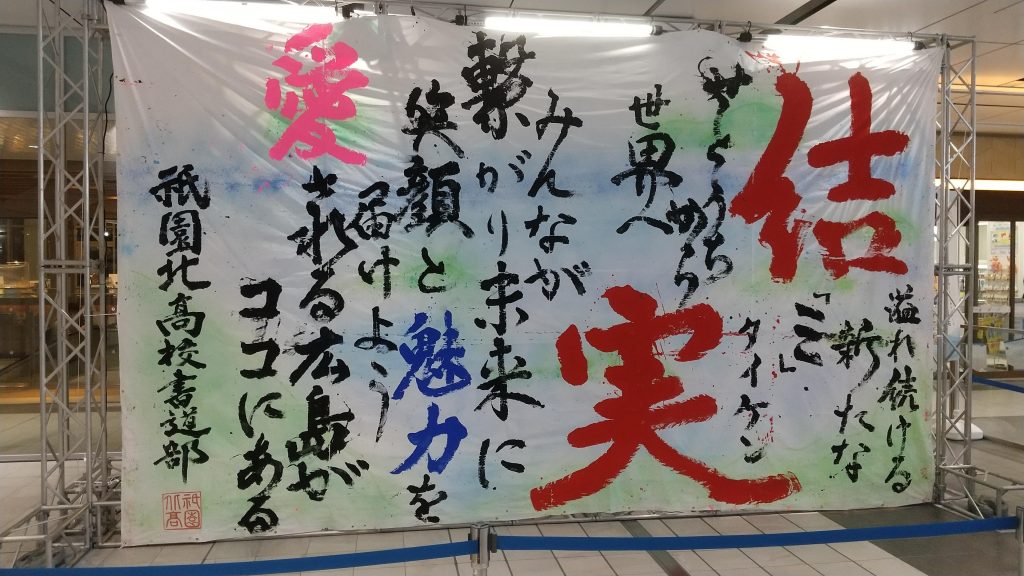 結実
溢れ続ける
新たな
「ミ」
タイケン
せとうちから
世界へ
みんなが
繋がり未来に
笑顔と魅力を
届けよう
愛される広島が
ココにある
祇園北高校書道部
祇園北高